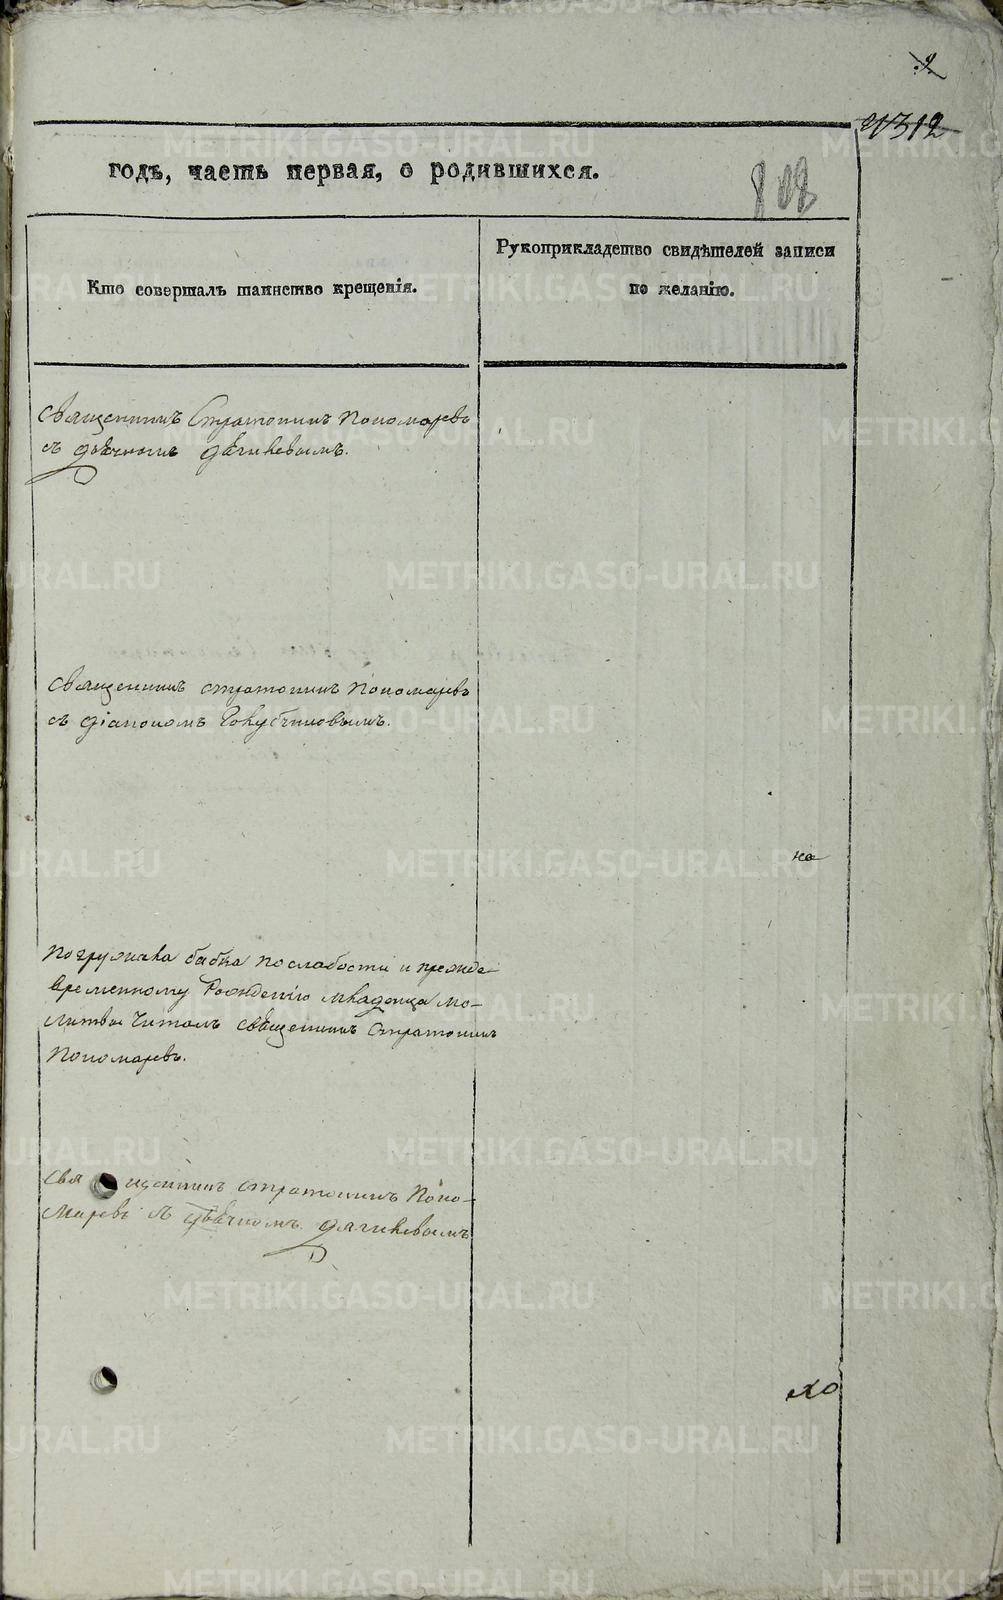 312
годъ, часть первая, о родившихся.
Кто совершалъ таинство крещенія.
Рукоприкладство свидѣтелей записи
по желанію.
Священникъ Стратоникъ Пономаревъ
съ дьячкомъ
Священникъ Стратоникъ Пономаревъ
съ діакономъ
погружала бабка по слабости и прежде
временному рожденію младенца мо-
литвы читалъ священникъ Стратоникъ
Пономаревъ.
Священникъ Стратоникъ Поно-
маревъ съ дьячкомъ
METRIKI.GASO-URAL.RU